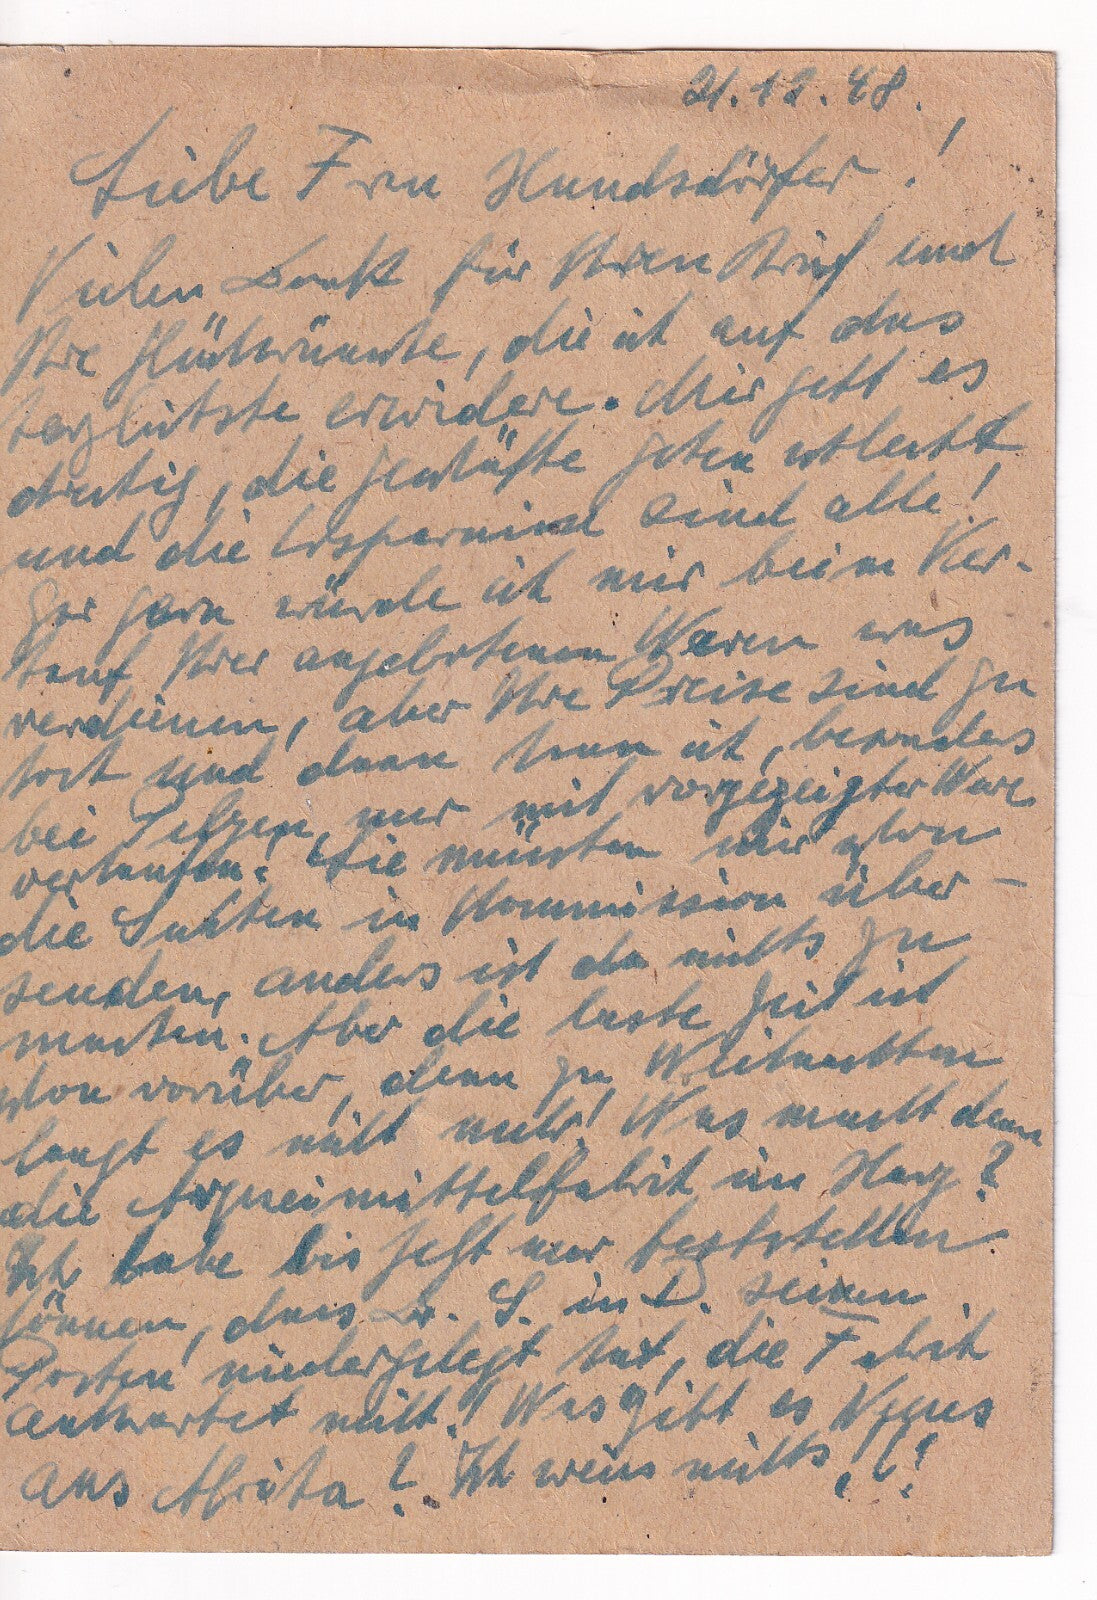 21.12.48.
Liebe Frau Hundsdörfer!
Vielen Dank für Ihren Brief und
Ihre Glückwünsche, die ich auf das
herzlichste erwidere. Mir geht es
dreckig, die Geschäfte gehen schlecht
und die Ersparnisse sind alle!
Gar gern würde ich mir beim Ver-
kauf Ihrer angebotenen Waren was
verdienen, aber Ihre Preise sind zu
hoch und dann kann ich, besonders
bei Pelzen, nur mit vorgezeigter Ware
verkaufen. Sie müssten mir schon
die Sachen in Kommission über-
senden, anders ist da nichts zu
machen. Aber die beste Zeit ist
schon vorüber, denn zu Weihnachten
langt es nicht mehr! Was macht denn
die Arzneimittelfabrik im Harz?
Ich habe bis jetzt nur feststellen
können, dass Dr. S. in D. seinen
Posten niedergelegt hat, die Fabrik
antwortet nicht! Was gibt es Neues
aus Afrika? Ich weiss nichts!